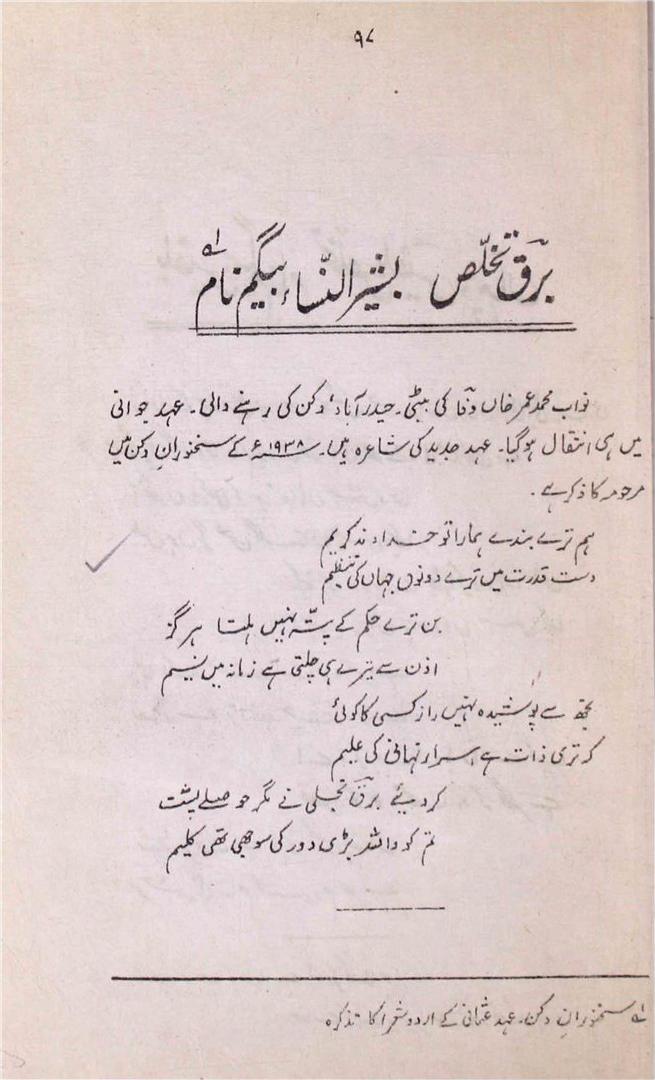 ۹۸
برقؔ تخلّص بشیر النّساء بیگم نام ؎۱
نواب محمد عمر خاں وفاؔ کی بیٹی۔ حیدرآباد، دکن کی رہنے والی۔ عہد جوانی
میں ہی انتقال ہو گیا۔ عہد جدید کی شاعرہ ہیں۔ ۱۹۳۸ء کے سخنورانِ دکن میں
مرحومہ کا ذکر ہے۔
ہم ترے بندے ہمارا تو خداوند کریم
دست قدرت میں ترے دونوں جہاں کی تنظیم
بن ترے حکم کے پتّہ نہیں ہلتا ہرگز
اذن سے تیرے ہی چلتی ہے زمانہ میں نسیم
تجھ سے پوشیدہ نہیں راز کسی کا کوئی
کہ تری ذات ہے اسرار نہانی کی علیم
کر دیئے برقؔ تجلی نے مگر حوصلے پست
تم کو واللہ بڑی دور کی سوجھی تھی کلیم
؎۱ سخنورانِ دکن۔ عہد عثمانی کے اردو شعرا کا تذکرہ